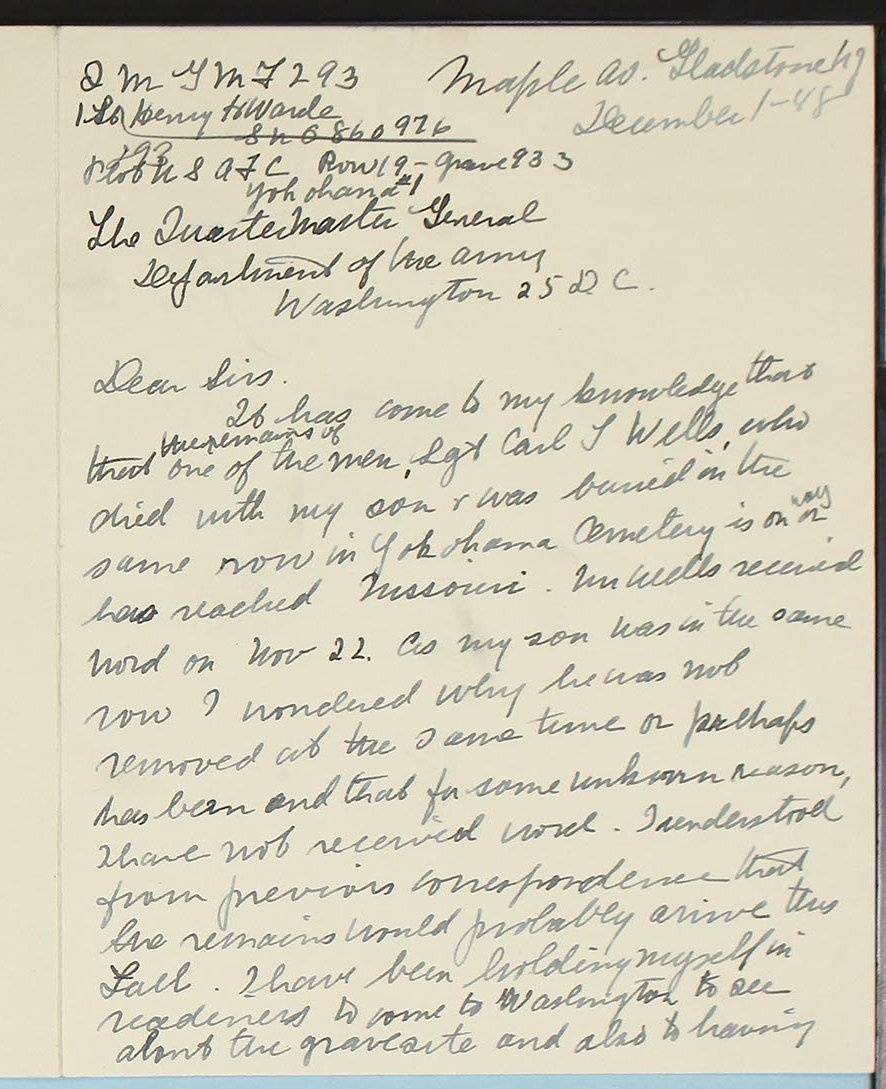 Q M G M F 293
Maple Av. Gladstone NJ
December 1-48
1st Lt Henry H Warde
S N 0860976
293
Plot U S A F C Row 19 - grave 933
Yokohama #1
The Quartermaster General
Department of the Army
Washington 25 D C.
Dear Sirs.
It has come to my knowledge that
the remains of
that one of the men, Sgt Carl T Wells, who
died with my son & was buried in the
way
same row in Yokohama Cemetery is on or
has reached Missouri. Mr Wells received
word on Nov 22. As my son was in the same
row I wondered why he was not
removed at the same time or perhaps
has been and that for some unknown reason,
I have not received word. I understood
from previous correspondence that
the remains would probably arrive this
Fall. I have been holding myself in
readiness to come to Washington to see
about the gravesite and also to having